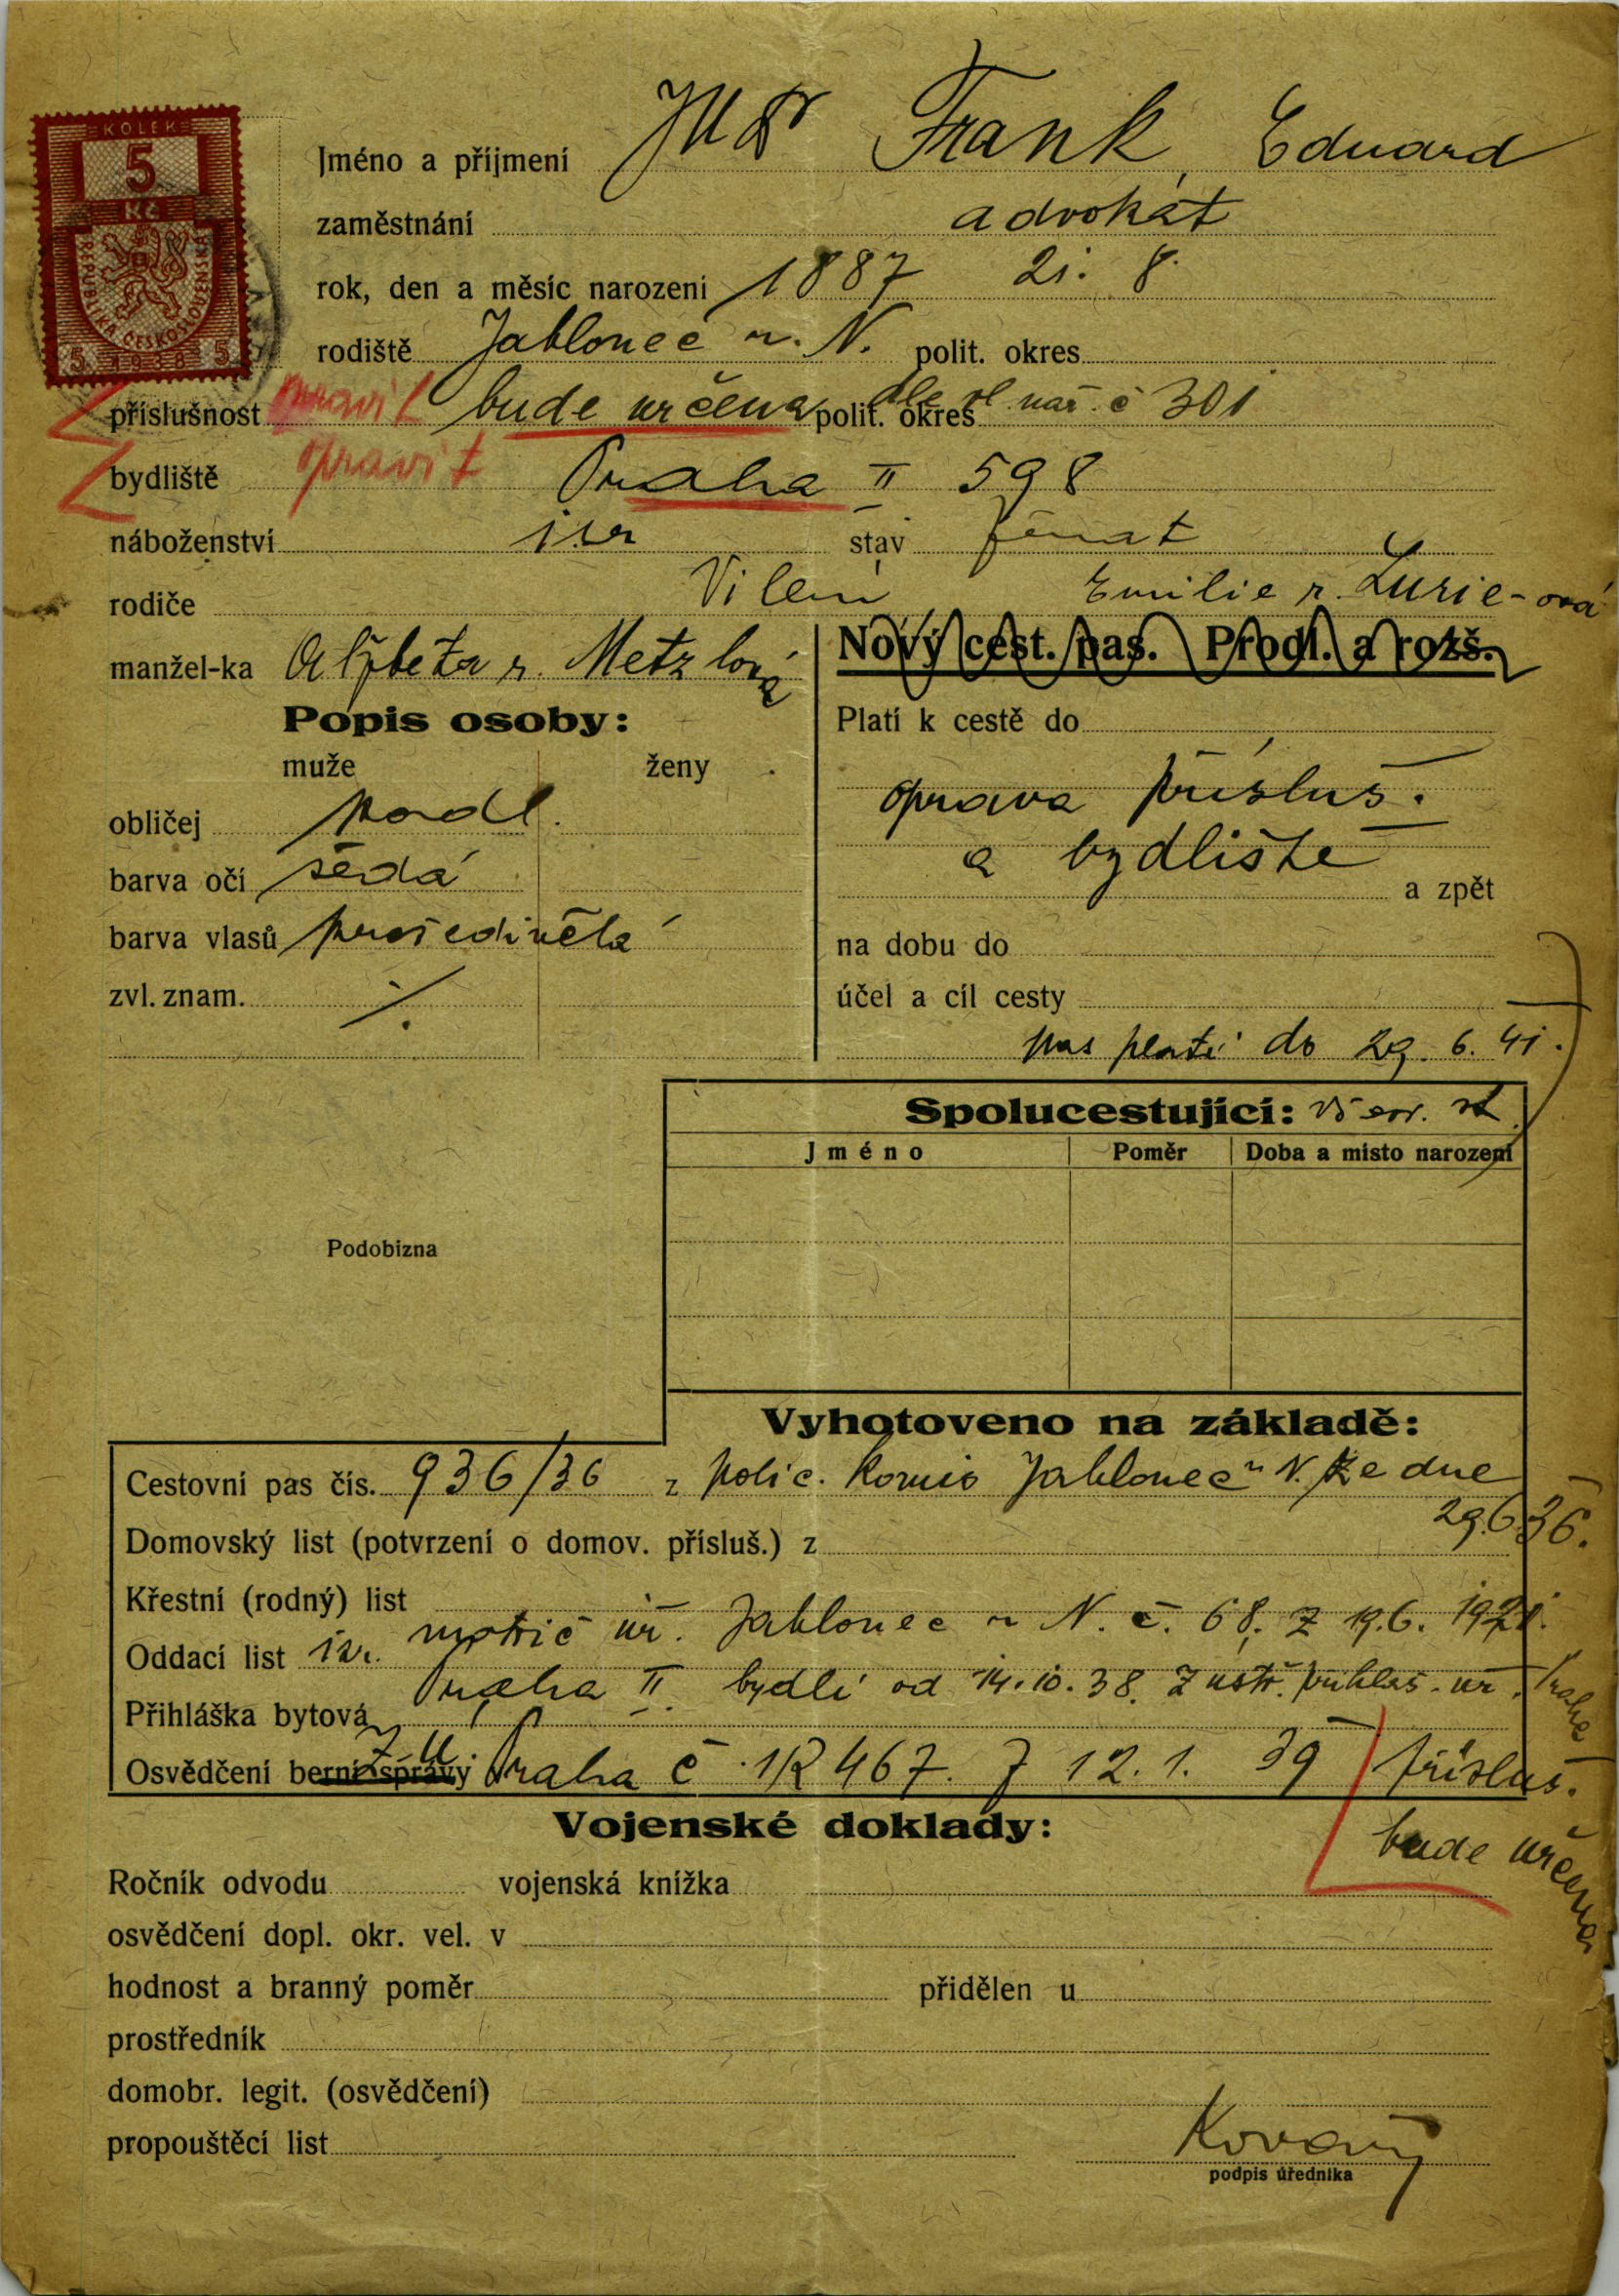 KOLEK
5
Kč
REPUBLIKA ČESKOSLOVENSKÁ
5 1938 5
Jméno a příjmení JUDr Frank Eduard
zaměstnání advokát
rok, den a měsíc narození 1887 21. 8.
rodiště Jablonec n. N. polit. okres
příslušnost opravit bude určena polit. okres dle vl. nař. č 301
bydliště opravit Praha II 598
náboženství isr stav ženat
rodiče Vilém Emilie r. Lurie-ová
manžel-ka Alžběta r. Metzlová
Nový cest. pas. Prodl. a rozš.
Popis osoby:
Platí k cestě do
muže ženy
oprava přísluš.
obličej podl.
a bydliště
barva očí šedá
a zpět
barva vlasů prošedivělá
na dobu do
zvl. znam. ./.
účel a cíl cesty
pas platí do 29. 6. 41.
Spolucestující:
Jméno Poměr Doba a místo narození
Podobizna
Vyhotoveno na základě:
Cestovní pas čís. 936/36 z polic. komis Jablonec n N. ze dne
29.6.36.
Domovský list (potvrzení o domov. přísluš.) z
Křestní (rodný) list
Oddací list isr. matrič úř. Jablonec n N. č. 68. z 19.6. 1921.
Přihláška bytová Praha II. bydlí od 14.10.38. z ústř. přihlaš. úř. Praha
Osvědčení berní správy Z. ú Praha č 1R 467. z 12. 1. 39 přísluš.
bude určena
Vojenské doklady:
Ročník odvodu vojenská knížka
osvědčení dopl. okr. vel. v
hodnost a branný poměr přidělen u
prostředník
domobr. legit. (osvědčení)
propouštěcí list
Kovařý
podpis úředníka